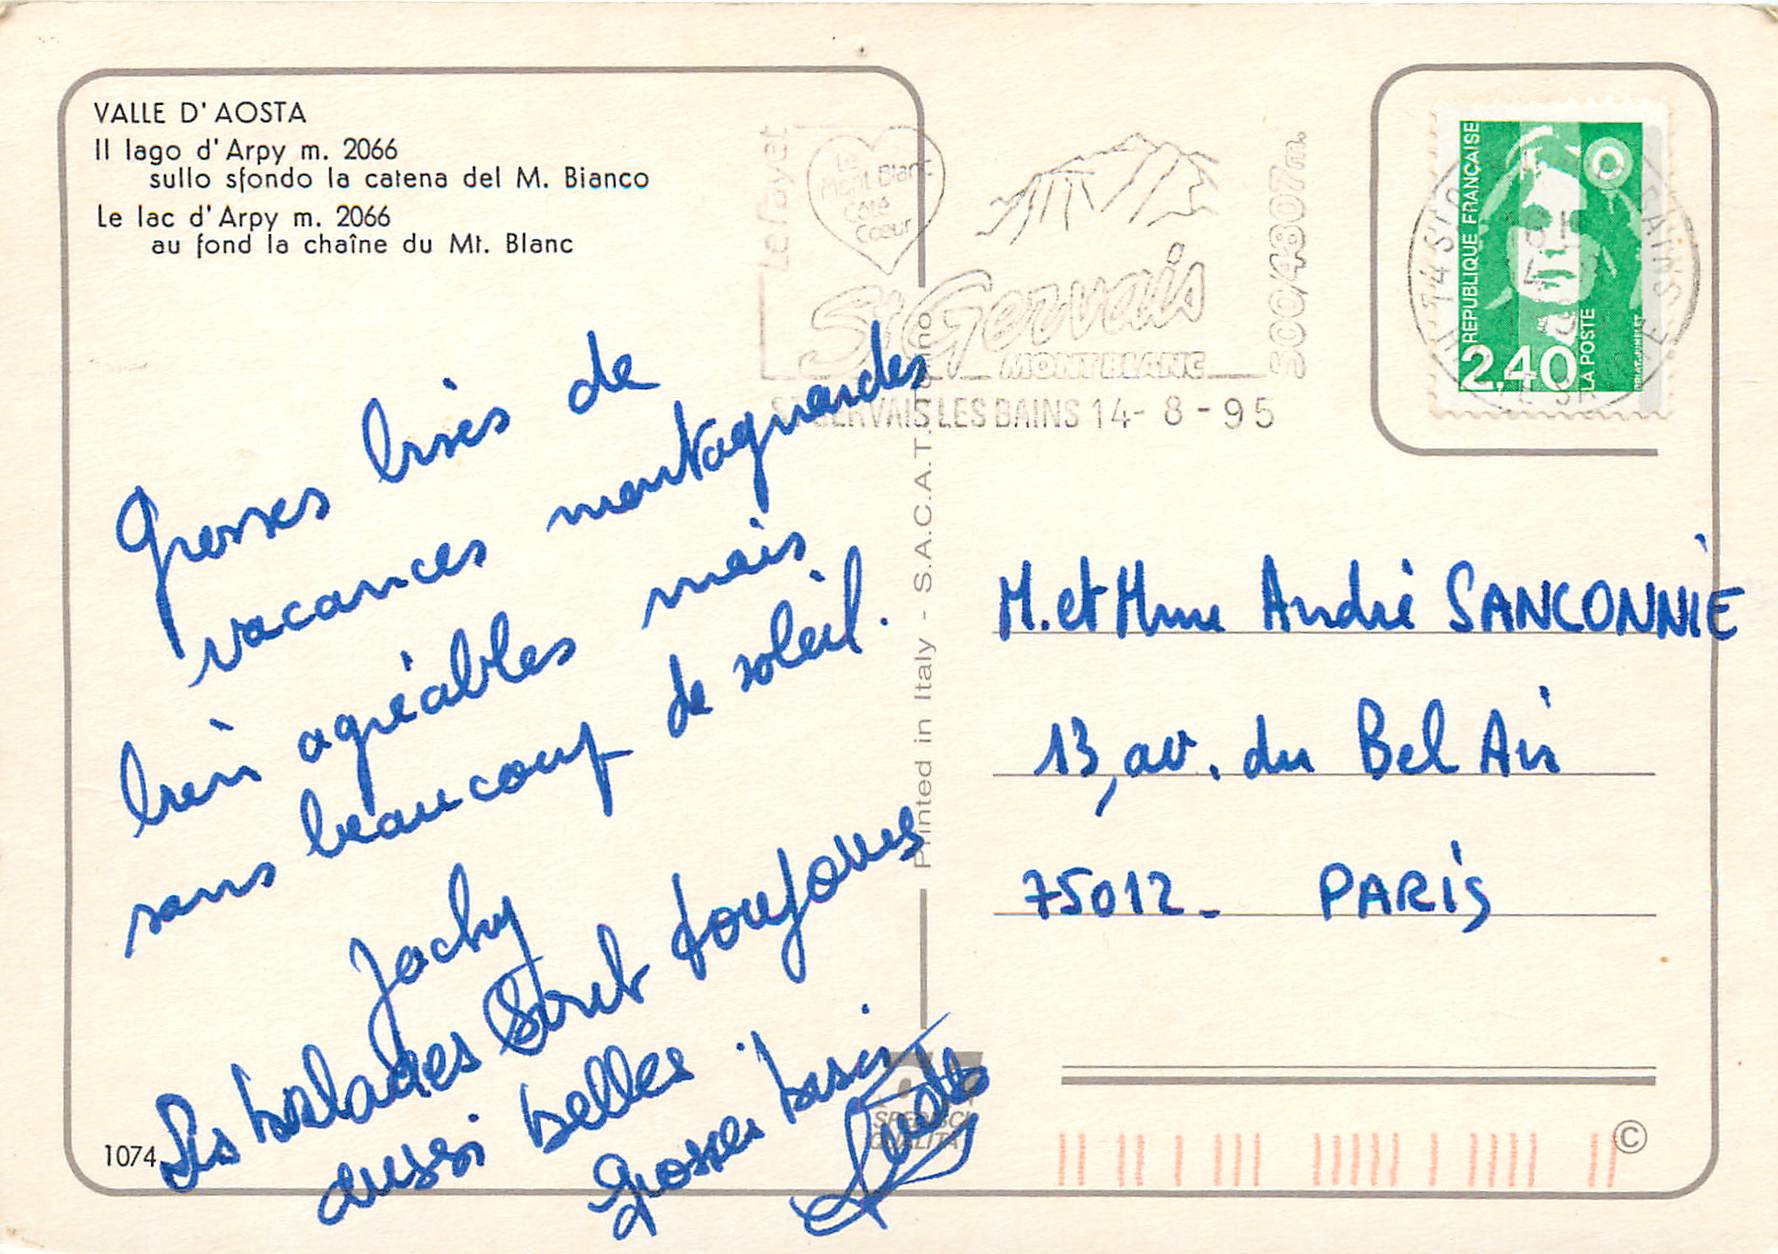 VALLE D'AOSTA
Il lago d'Arpy m. 2066
sullo sfondo la catena del M. Bianco
Le lac d'Arpy m. 2066
au fond la chaîne du Mt. Blanc
Le Fayet
Le
Mont Blanc
Côté
Cœur
St Gervais
MONT BLANC
500/4807m.
GERVAIS LES BAINS 14-8-95
REPUBLIQUE FRANÇAISE
2,40
LA POSTE
Grosses bises de
vacances montagnardes
bien agréables mais
sans beaucoup de soleil.
Jacky
Les balades sont toujours
aussi belles
Grosses bises
Printed in Italy - S.A.C.A.T.
M. et Mme André SANCONNIE
13, av. du Bel Air
75012 - PARIS
1074
©